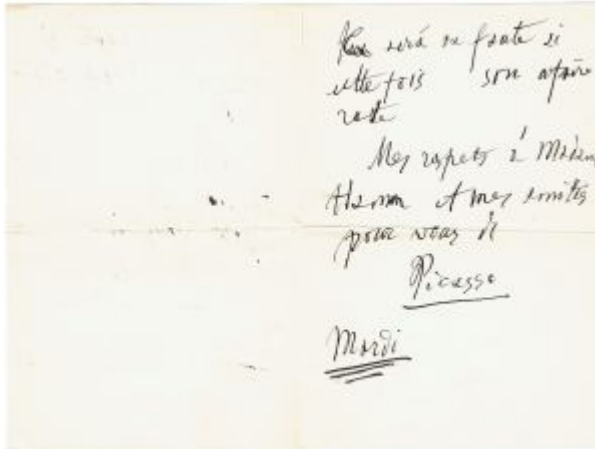 será sa faute si
cette fois son afaire
rate
Mes respets à Madam
et mes amities
pour vous de
Picasso
Mardi